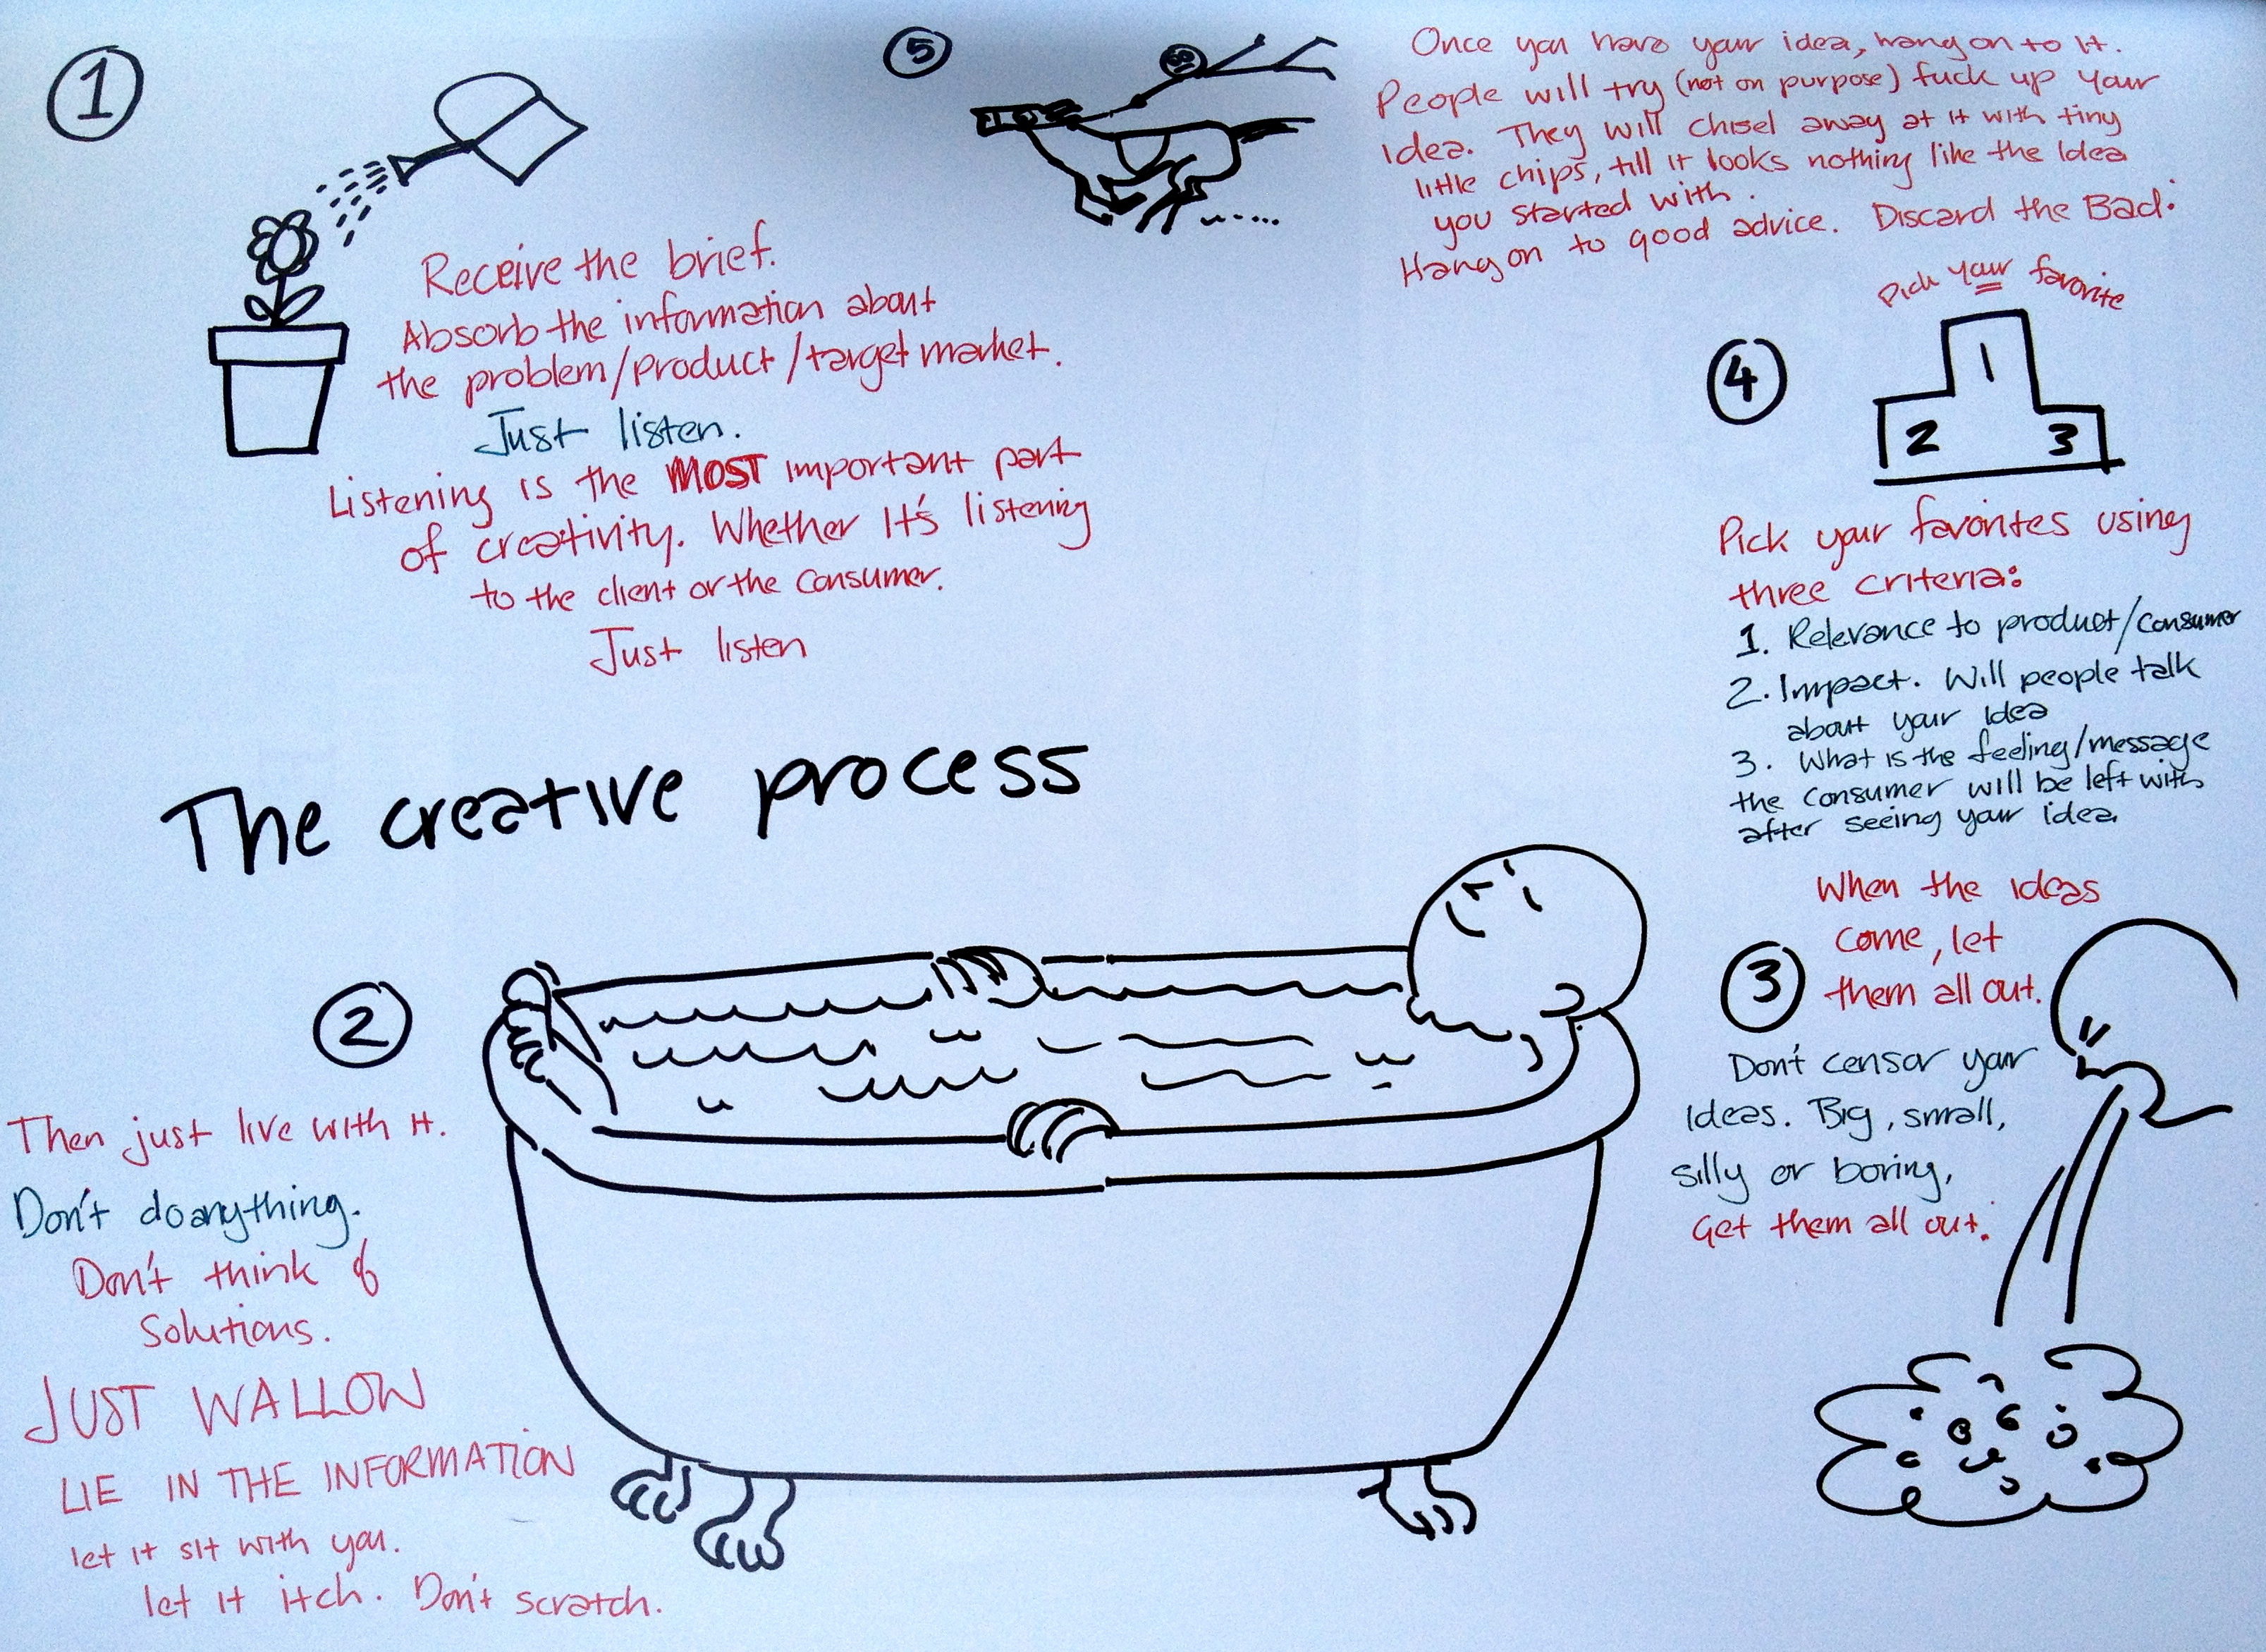 1
Receive the brief.
Absorb the information about
the problem/product/target market.
Just listen.
Listening is the MOST important part
of creativity. Whether It's listening
to the client or the consumer.
Just listen
The creative process
2
Then just live with it.
Don't do anything.
Don't think of
Solutions.
JUST WALLOW
LIE IN THE INFORMATION
let it sit with you.
let it itch. Don't scratch.
3
When the ideas
come, let
them all out.
Don't censor your
Ideas. Big, small,
silly or boring,
Get them all out.
4
Pick your favorite
1
2 3
Pick your favorites using
three criteria:
1. Relevance to product/consumer
2. Impact. Will people talk
about your idea
3. What is the feeling/message
the consumer will be left with
after seeing your idea
5
Once you have your idea, hang on to it.
People will try (not on purpose) fuck up your
idea. They will chisel away at it with tiny
little chips, till it looks nothing like the Idea
you started with.
Hang on to good advice. Discard the Bad.